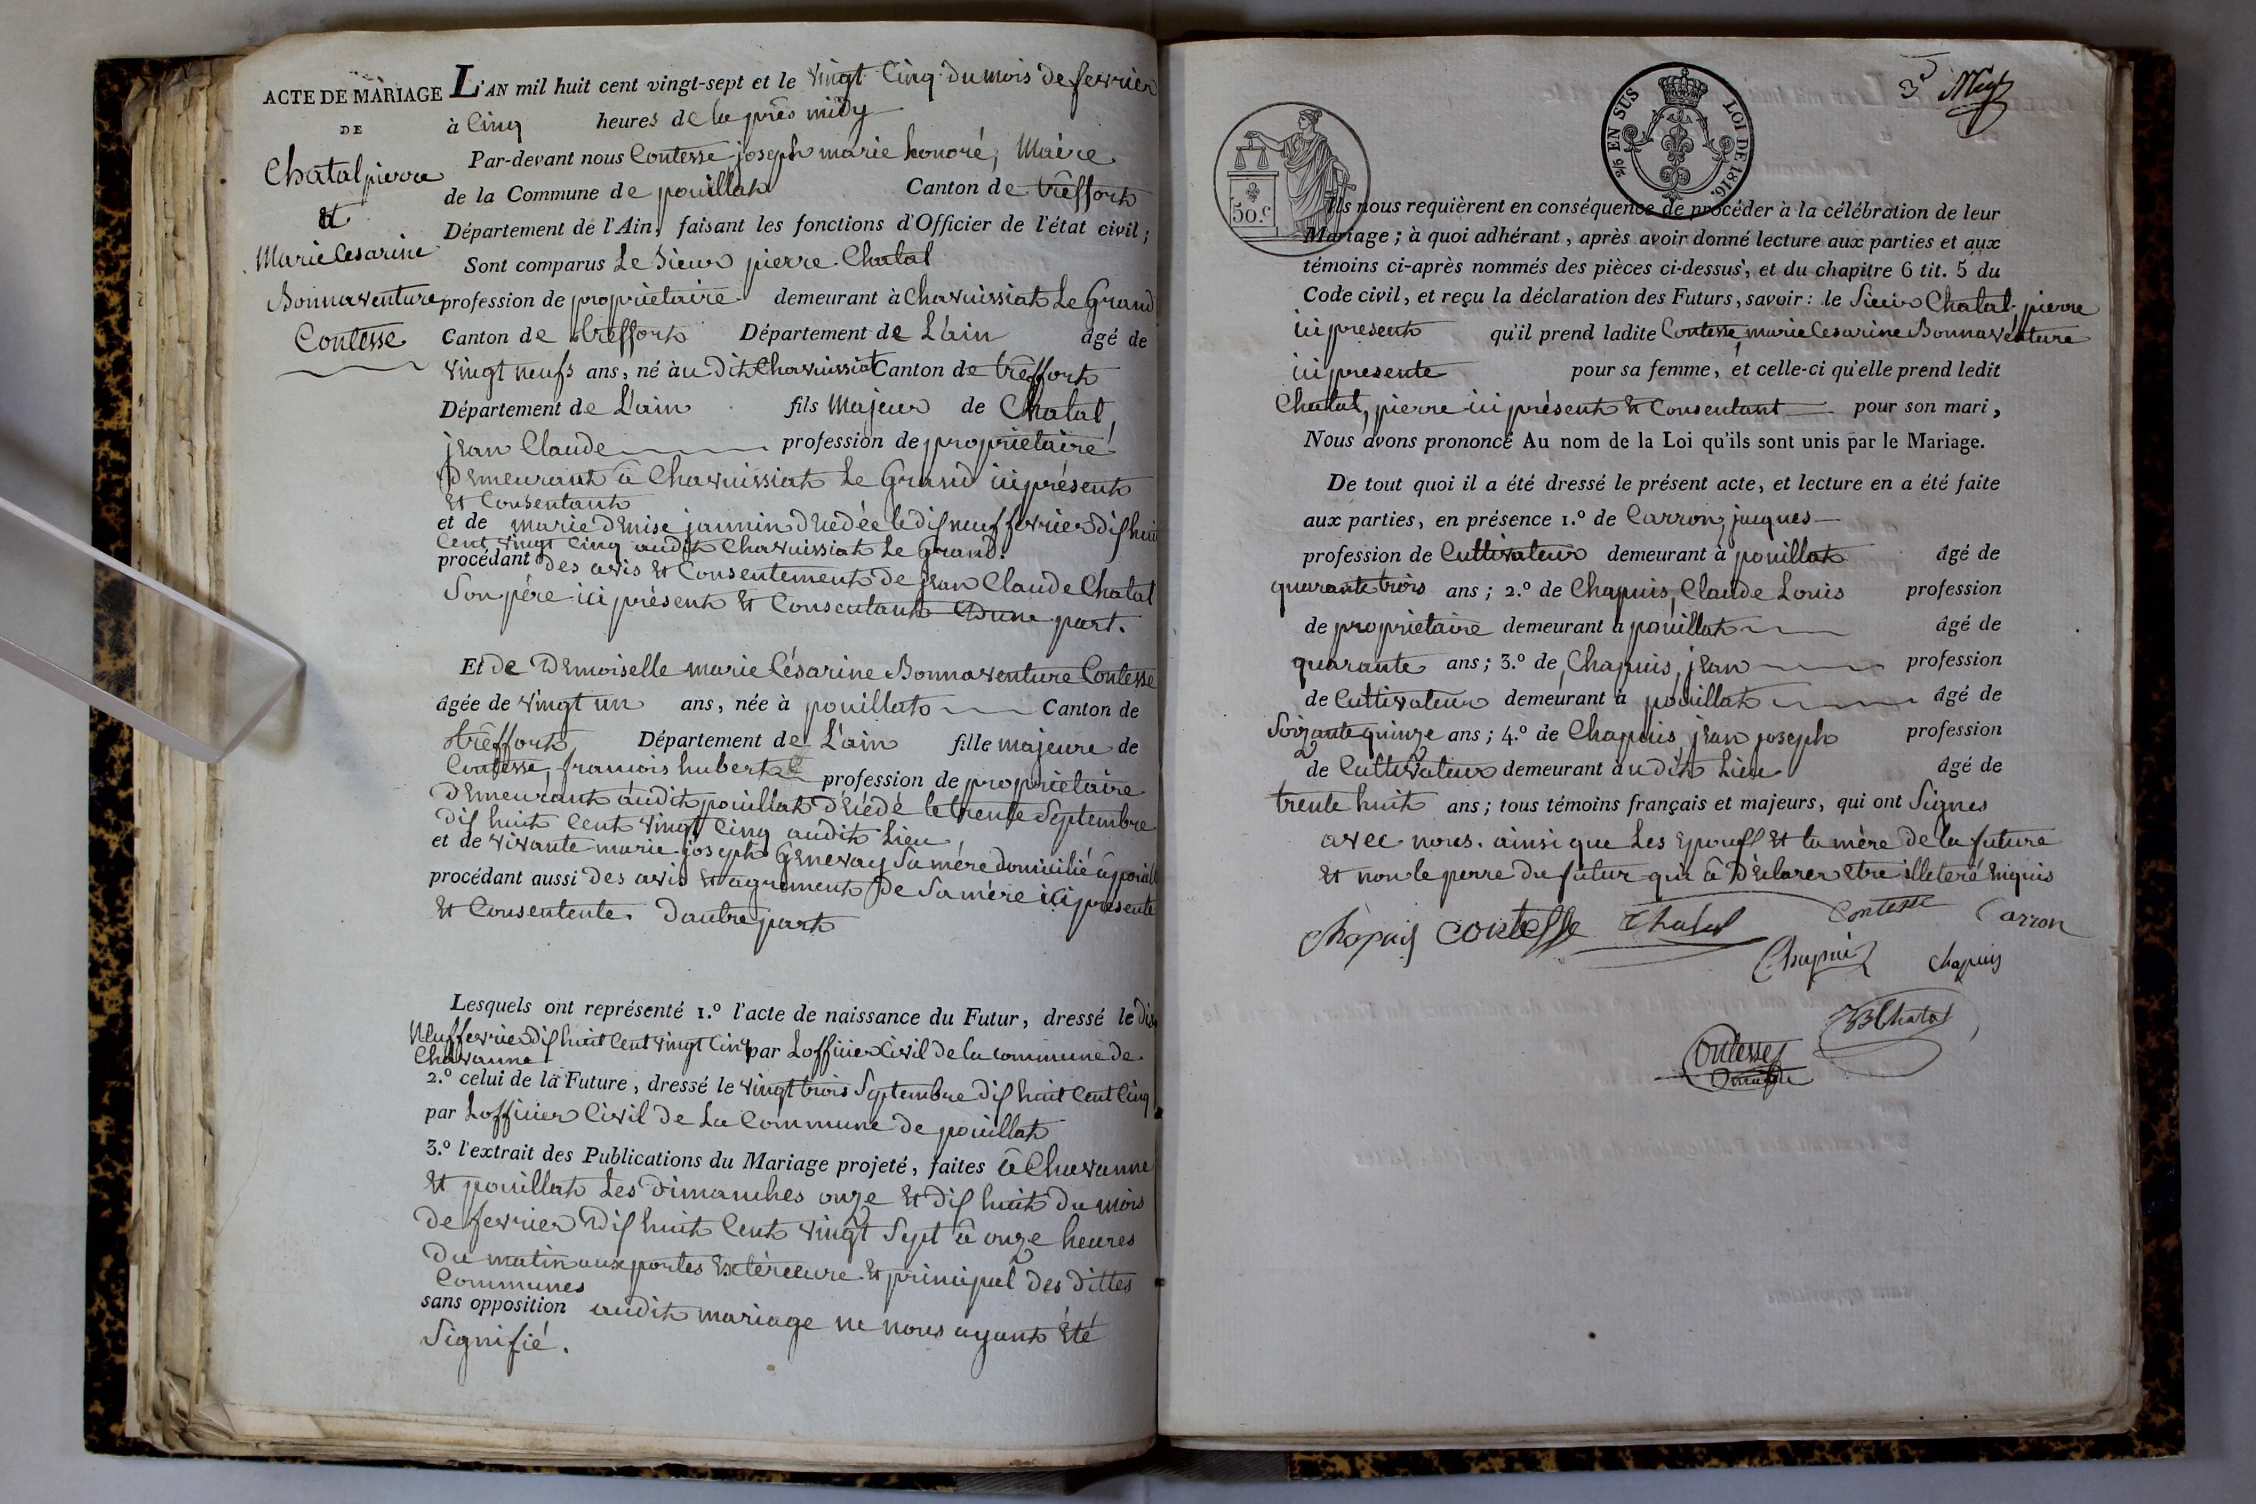 ACTE DE MARIAGE
DE
Chatal pierre
et
Marie Cesarine
Bonnaventure
Contesse
L'AN mil huit cent vingt-sept et le vingt Cinq du mois de fevrier
à Cinq heures de la près midy
Par-devant nous Contesse joseph marie honoré, Maire
de la Commune de pouillat Canton de trêffort
Département de l'Ain, faisant les fonctions d'Officier de l'état civil;
Sont comparus Le Sieur pierre Chatal
profession de propriétaire demeurant à Chavuissiat Le Grand
Canton de trêffort Département de L'ain âgé de
vingt neufs ans, né àu dit Chavuissiat Canton de trêffort
Département de L'ain fils Majeur de Chatal,
jean Claude profession de propriétaire
Demeurant à Chavuissiat Le Grand ici présent
et Consentant
et de marie Denise jannin décédée le dis neuf fevrier dis huit
Cent vingt Cinq audit Chavuissiat Le Grand.
procédant des avis et Consentement de jean Claude Chatal
Son père ici présent et Consentant D'une part.
Et de Demoiselle marie Césarine Bonnaventure Contesse
âgée de vingt un ans, née à pouillat Canton de
trêffort Département de L'ain fille majeure de
Contesse, francois hubert profession de propriétaire
Demeurant audit pouillat décédé le trente Septembre
dis huit Cent vingt Cinq audit Lieu
et de vivante marie joseph Genevay Sa mére domicilié à pouillat
procédant aussi des avis et agrement de Sa mère ici présente
et Consentente. D'autre part
Lesquels ont représenté 1.º l'acte de naissance du Futur, dressé le dis
Neuf fevrier dis huit Cent vingt Cinq par L'officier Civil de la commune de
Chavanne
2.º celui de la Future, dressé le vingt trois Septembre dis huit Cent Cinq
par L'officier Civil de La Commune de pouillat
3.º l'extrait des Publications du Mariage projeté, faites à Chavanne
et pouillat Les Dimanches onze et dis huit du mois
de fevrier dis huit Cent vingt Sept à onze heures
du matin aux portes Extèrieure et principal des dittes
Communes
sans opposition audit mariage ne nous ayant été
Signifié.
3
50.c
EN SUS LOI DE 1816.
Ils nous requièrent en conséquence de procéder à la célébration de leur
Mariage; à quoi adhérant, après avoir donné lecture aux parties et aux
témoins ci-après nommés des pièces ci-dessus, et du chapitre 6 tit. 5 du
Code civil, et reçu la déclaration des Futurs, savoir: le Sieur Chatal, pierre
ici present qu'il prend ladite Contesse, marie Cesarine Bonnaventure
ici presente pour sa femme, et celle-ci qu'elle prend ledit
Chatal, pierre ici présent et Consentant pour son mari,
Nous avons prononcé Au nom de la Loi qu'ils sont unis par le Mariage.
De tout quoi il a été dressé le présent acte, et lecture en a été faite
aux parties, en présence 1.º de Carron, jacques
profession de Cultivateur demeurant à pouillat âgé de
quarante trois ans; 2.º de Chapuis, Claude Louis profession
de propriétaire demeurant à pouillat âgé de
quarante ans; 3.º de Chapuis, jean profession
de Cultivateur demeurant à pouillat âgé de
Soixante quinze ans; 4.º de Chapuis jean joseph profession
de Cultivateur demeurant àu dit Lieu âgé de
trente huit ans; tous témoins français et majeurs, qui ont Signes
avec nous. ainsi que Les Epoux et la mère de la future
et non le perre du futur qui à Déclarer être illeteré Enquis
Chapuis Contesse Chatal Contesse Carron
Chapuis chapuis
Chatal
Contesse